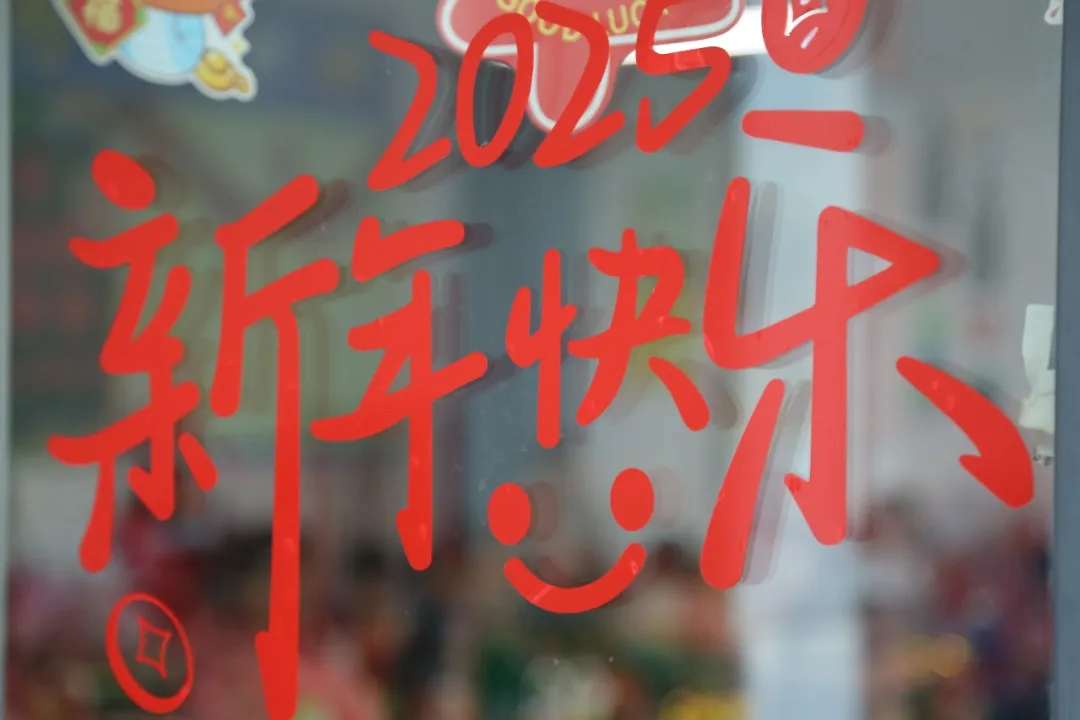 福
GOOD LUCK
2025
新年快乐